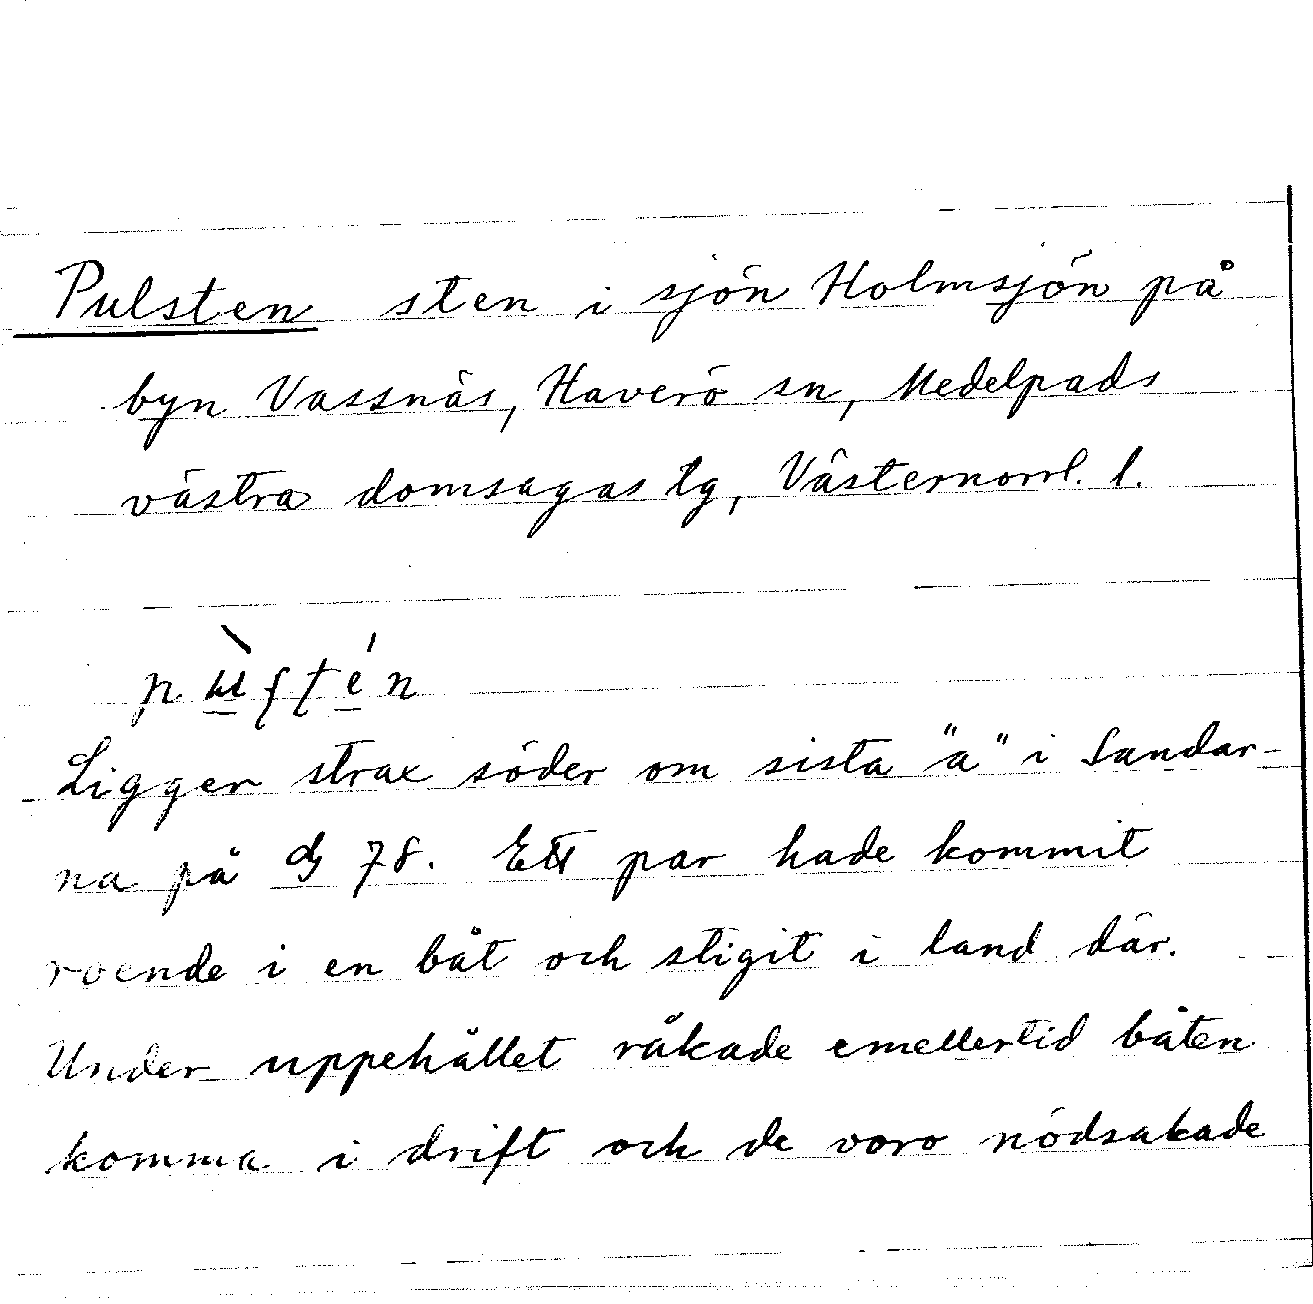 Pulsten sten i sjön Holmsjön på
byn Vassnäs, Haverö sn, Medelpads
västra domsagas tg, Västernorrl. l.
Ligger strax söder om sista "a" i Sandar-
na på 78. Ett par hade kommit
roende i en båt och stigit i land där.
Under uppehållet råkade emellertid båten
komma i drift och de voro nödsakade